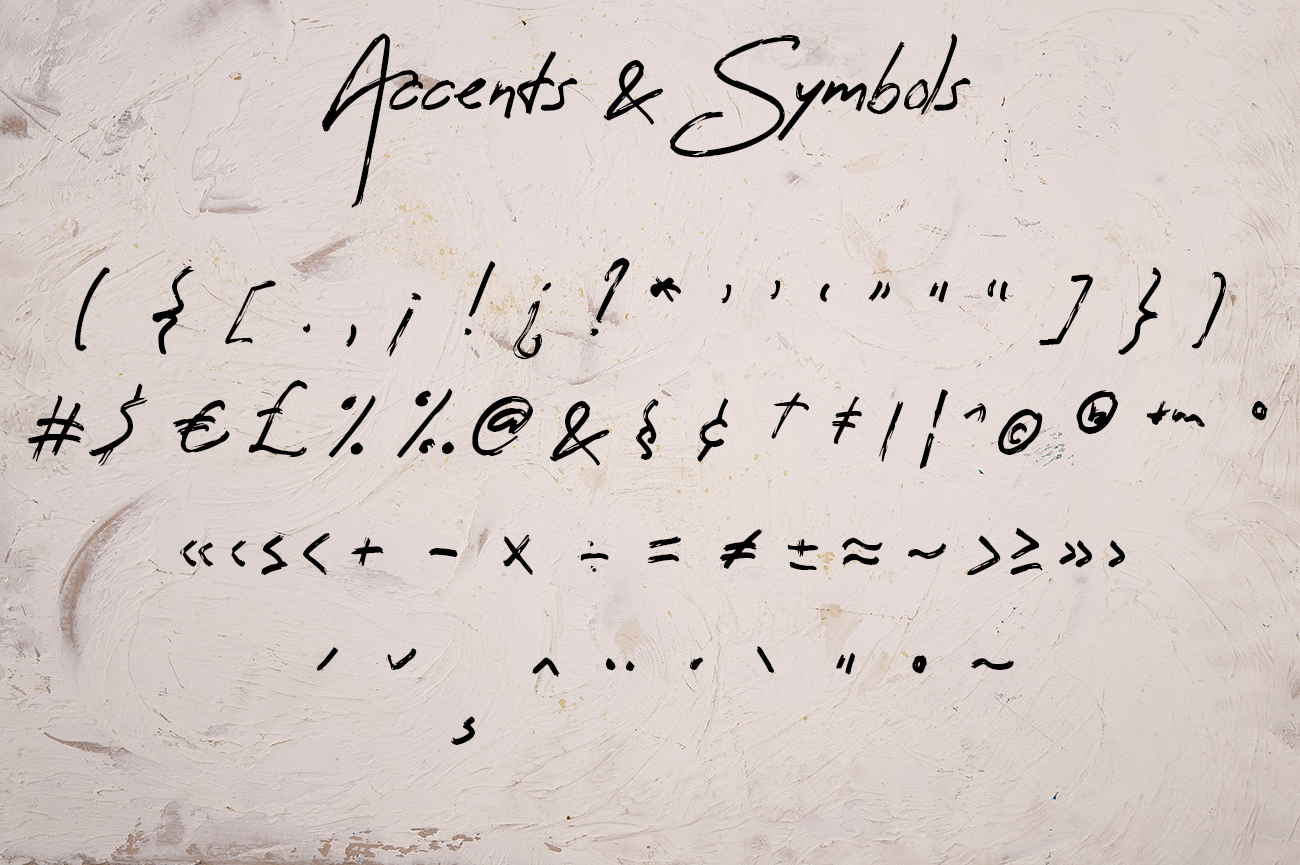 Accents & Symbols
( { [ . , ¡ ! ¿ ? * ’ ’ ‘ ” " " “ ] } )
# $ € £ % ‰ @ & § ¢ † ‡ | ¦ ^ © ® ™ °
« ‹ ≤ < + − × ÷ = ≠ ± ≈ ~ > ≥ » ›
´ ˇ ¸ ˆ ¨ ˙ ` ˝ ˚ ˜